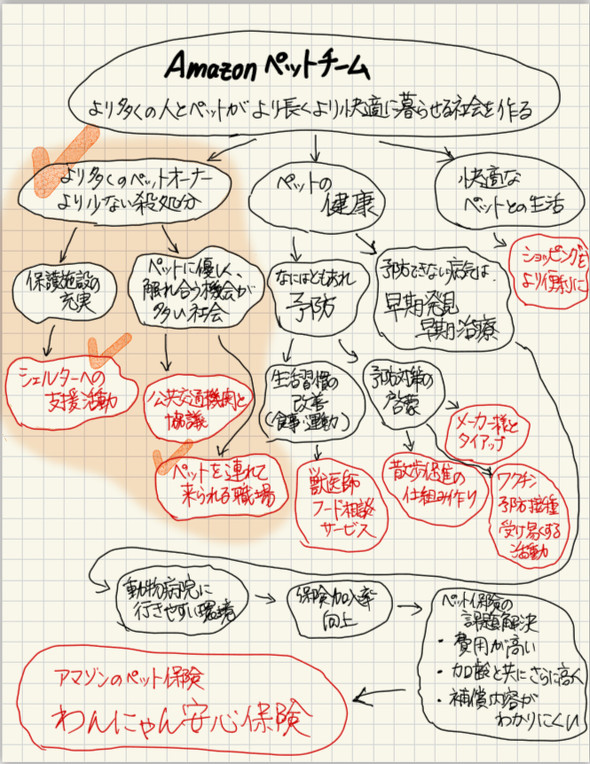 Amazon ペットチーム
より多くの人とペットがより長くより快適に暮らせる社会を作る
より多くのペットオーナー
より少ない殺処分
ペットの
健康
快適な
ペットとの生活
ショッピングを
より便利に
保護施設の
充実
ペットに優しく、
触れ合う機会が
多い社会
なにはともあれ
予防
予防できない病気は
早期発見
早期治療
シェルターへの
支援活動
公共交通機関と
協議
生活習慣の
改善
(食事・運動)
予防対策の
啓蒙
メーカー様と
タイアップ
ペットを連れて
来られる職場
獣医師
フード相談
サービス
散歩促進の
仕組み作り
ワクチン
予防接種
受け易くする
活動
動物病院に
行きやすい環境
保険加入率
向上
ペット保険の
課題解決
・費用が高い
・加齢と共にさらに高く
・補償内容が
わかりにくい
アマゾンのペット保険
わんにゃん安心保険